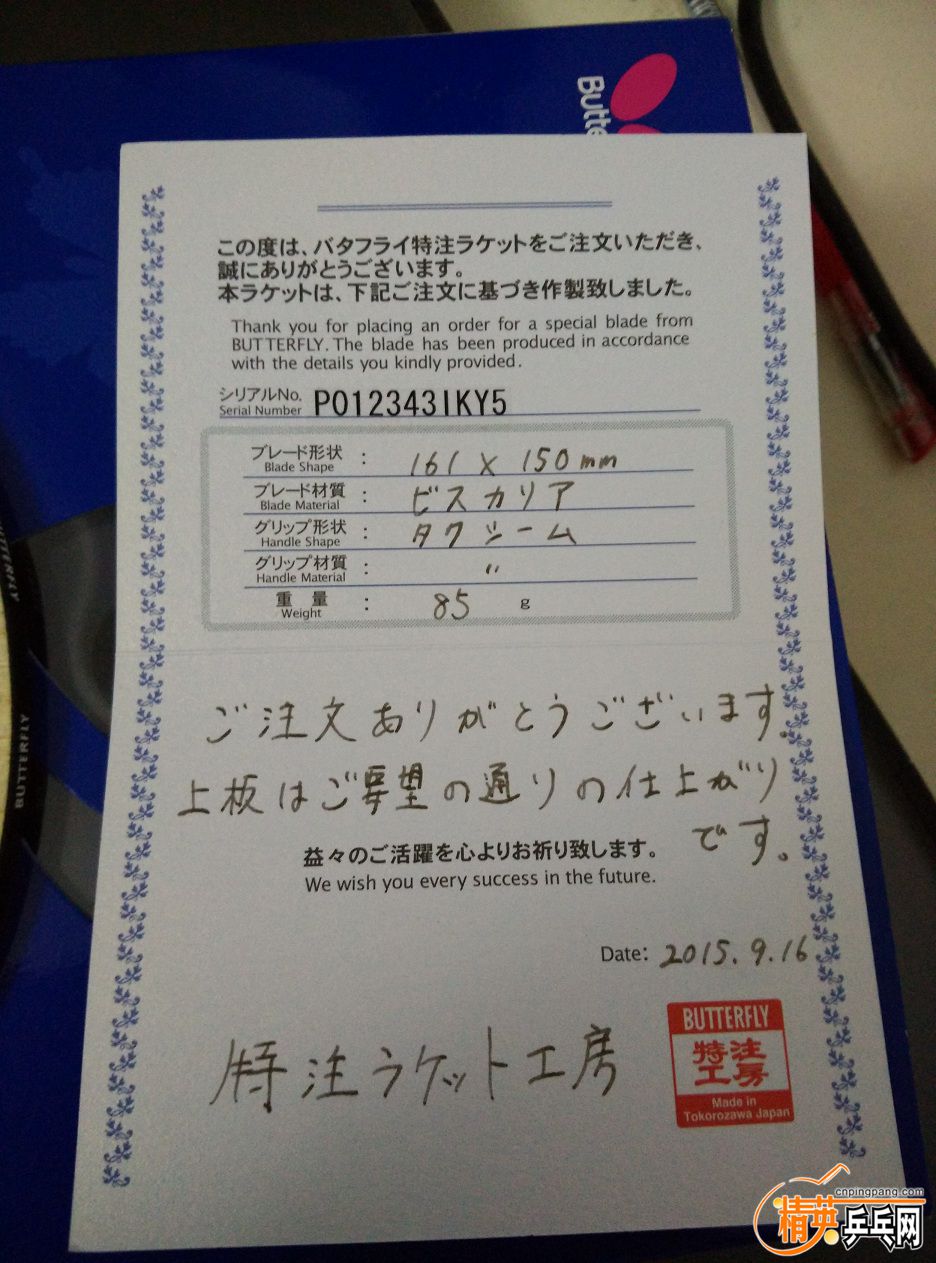 Butte
この度は、バタフライ特注ラケットをご注文いただき、
誠にありがとうございます。
本ラケットは、下記ご注文に基づき作製致しました。
Thank you for placing an order for a special blade from
BUTTERFLY. The blade has been produced in accordance
with the details you kindly provided.
シリアルNo.
Serial Number P012343IKY5
ブレード形状
Blade Shape : 161 × 150mm
ブレード材質
Blade Material : ビスカリア
グリップ形状
Handle Shape : タクシーム
グリップ材質
Handle Material : 〃
重量
Weight : 85 g
ご注文ありがとうございます。
上板はご要望の通りの仕上がり
です。
益々のご活躍を心よりお祈り致します。
We wish you every success in the future.
Date: 2015.9.16
特注ラケット工房
BUTTERFLY
特注
工房
Made in
Tokorozawa Japan
BUTTERFLY
cnpingpang.com
精英乒乓网